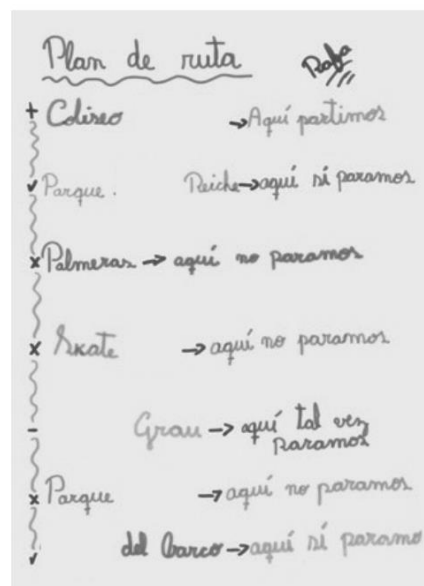 Plan de ruta Rafa
+ Coliseo → Aquí partimos
✓ Parque. Reiche → aquí sí paramos
x Palmeras → aquí no paramos
x Skate → aquí no paramos
- Grau → aquí tal vez
paramos
x Parque → aquí no paramos
✓ del barco → aquí sí paramo